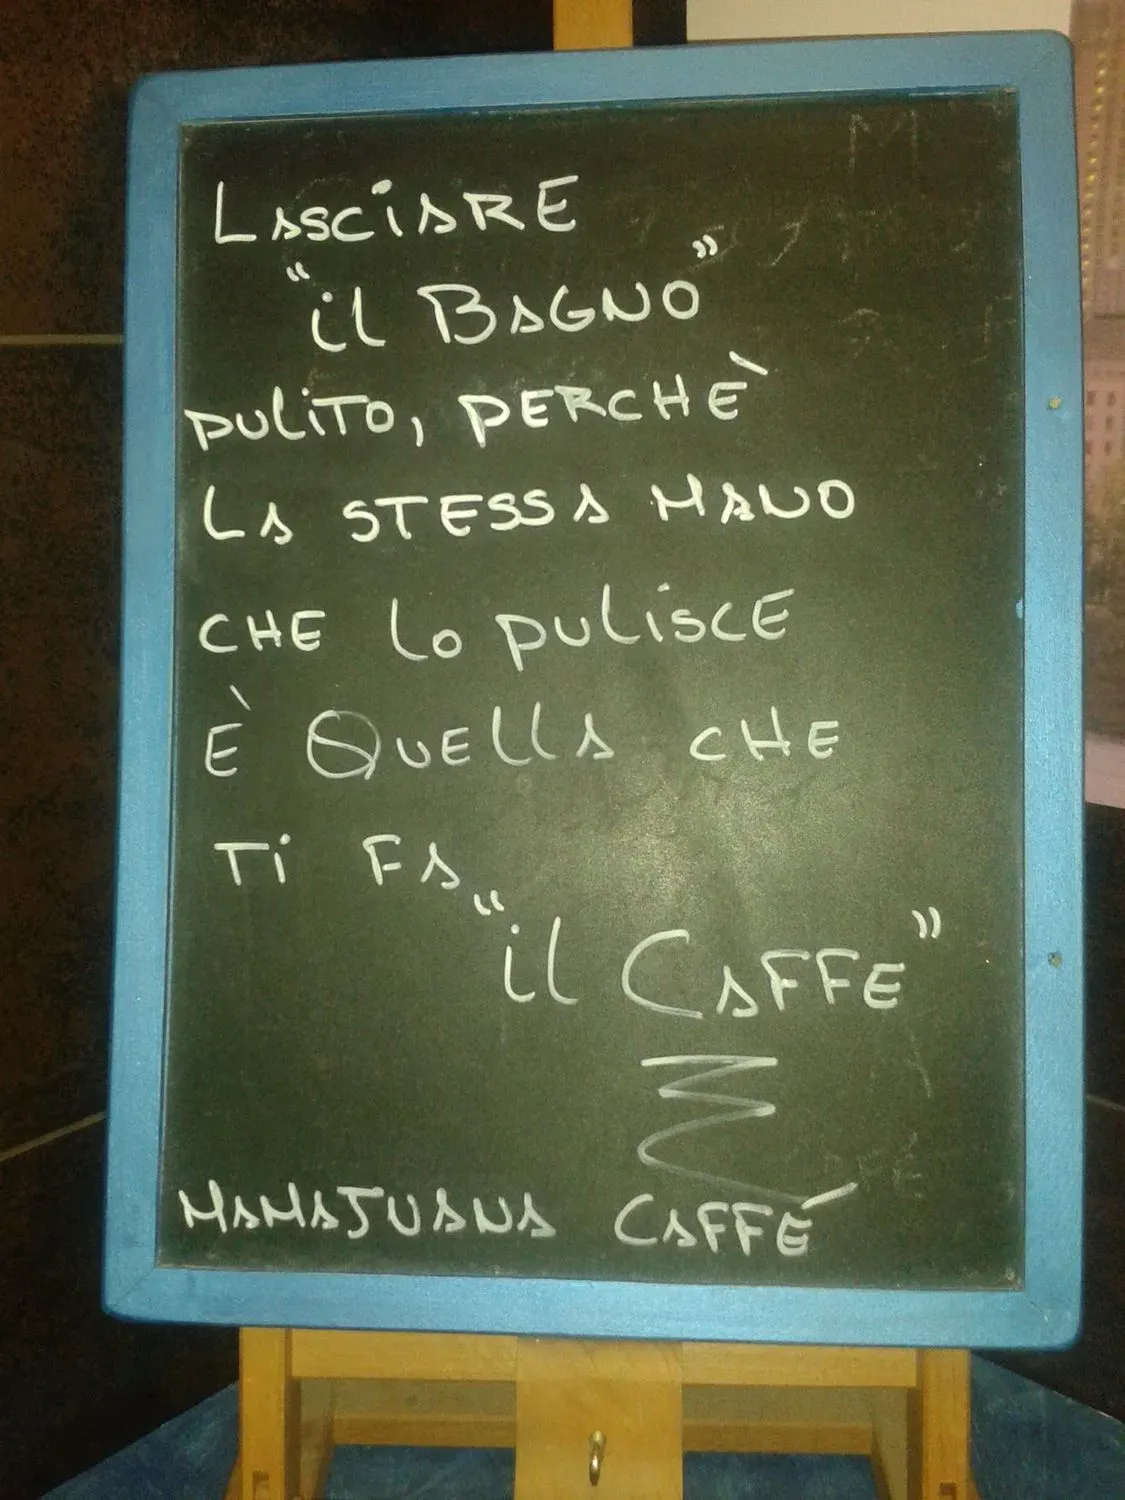 LASCIARE
"il BAGNO"
PULITO, PERCHÈ
LA STESSA MANO
CHE lo PULISCE
È QUELLA CHE
Ti FA
"il CAFFE"
MAMAJUANA CAFFÉ